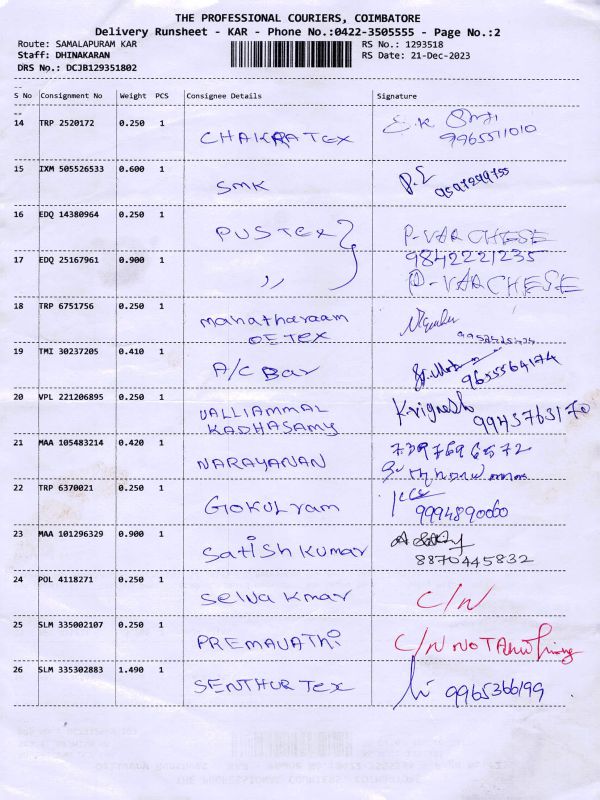 THE PROFESSIONAL COURIERS, COIMBATORE
Delivery Runsheet - KAR - Phone No.:0422-3505555 - Page No.:2
Route: SAMALAPURAM KAR RS No.: 1293518
Staff: DHINAKARAN RS Date: 21-Dec-2023
DRS No.: DCJB129351802
S No Consignment No Weight PCS Consignee Details Signature
14 TRP 2520172 0.250 1 CHAKRATEX
9965571010
15 IXM 505526533 0.600 1 SMK
16 EDQ 14380964 0.250 1 PUSTEX P-VARCHESE
17 EDQ 25167961 0.900 1 ,, 9842221235
P-VARCHESE
18 TRP 6751756 0.250 1 manatharaam
OETEX
19 TMI 30237205 0.410 1 A/C Bar 9655564174
20 VPL 221206895 0.250 1 VALLIAMMAL K.vignesh
KADHASAMY 9943763170
21 MAA 105483214 0.420 1 NARAYANAN 7397696572
22 TRP 6370021 0.250 1 GOKULram
9994890060
23 MAA 101296329 0.900 1 Satish Kumar
8870445832
24 POL 4118271 0.250 1 Selva Kmar C/N
25 SLM 335002107 0.250 1 PREMAVATHi C/N NOT
26 SLM 335302883 1.490 1 SENTHUR Tex 9965366199